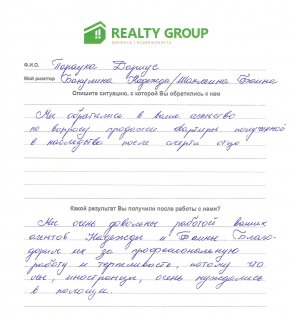 REALTY GROUP
ФИНАНСЫ | НЕДВИЖИМОСТЬ
Ф.И.О. Параука Дариус
Мой риэлтор Бакулина Надежда/Шаклеина Фаина
Опишите ситуацию, с которой Вы обратились к нам
Мы обратились в ваше агенство
по вопросу продажи квартиры полученной
в наследство после смерти отца
Какой результат Вы получили после работы с нами?
Мы очень довольны работой ваших
агентов Надежды и Фаины. Благо-
дарим их за профессиональную
работу и терпеливость, потому что
мы, иностранцы, очень нуждались
в помощи.